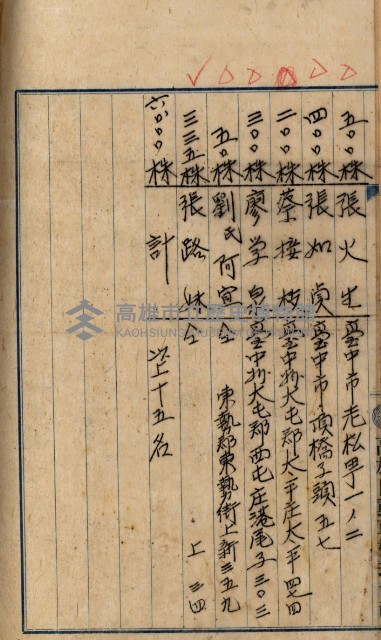 五〇〇株 張火生 臺中市老松町一ノ二
四〇〇株 張如貞 臺中市頂橋子頭五七
二〇〇株 蔡接枝 臺中州大屯郡太平庄太平四七四
三〇〇株 廖学昆 臺中州大屯郡西屯庄港尾子三〇三
五〇株 劉氏阿宣 仝 東勢郡東勢街上新三五九
三三五株 張路妹 仝 上 三四
六〇〇〇株 計 以上十五名
高雄市立歷史博物館
KAOHSIUNG